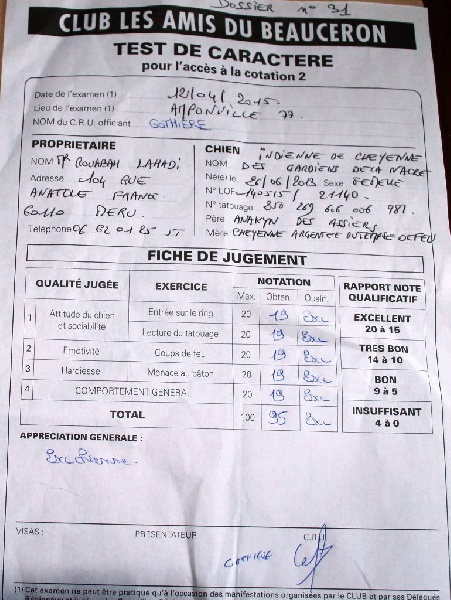 DOSSIER n° 31
CLUB LES AMIS DU BEAUCERON
TEST DE CARACTERE
pour l'accès à la cotation 2
Date de l'examen (1) 12/04/2015
Lieu de l'examen (1) AMPONVILLE 77
NOM du C.R.U. officiant GOTHIERE
PROPRIETAIRE
NOM Mr ROUABAH LAHADI
Adresse 104 RUE
ANATOLE FRANCE
60110 MERU
Téléphone 06 62 01 25
CHIEN INDIENNE DE CHEYENNE
NOM DES GARDIENS DE LA NACRE
Né(e) le 26/06/2013 Sexe FEMELLE
N° LOF 140515/ 21140
N° tatouage 250 269 606 006 981
Père ANAKYN DES ASSIERS
Mère CHEYENNE ARGENTEE
FICHE DE JUGEMENT
QUALITÉ JUGÉE EXERCICE NOTATION RAPPORT NOTE QUALIFICATIF
Max. Obten. Qualif.
1 Attitude du chien et sociabilité Entrée sur le ring 20 19 Exc EXCELLENT 20 à 15
Lecture du tatouage 20 19 Exc
2 Emotivité Coups de feu 20 19 Exc TRES BON 14 à 10
3 Hardiesse Menace au bâton 20 19 Exc BON 9 à 5
4 COMPORTEMENT GENERAL 20 19 Exc
TOTAL 100 95 Exc INSUFFISANT 4 à 0
APPRECIATION GENERALE :
Exc chienne
VISAS : PRESENTATEUR C.R.U.
GOTHIERE
(1) Cet examen ne peut être pratiqué qu'à l'occasion des manifestations organisées par le CLUB et par ses Délégués